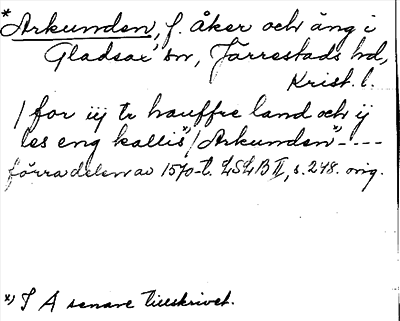 *Arkunden, f. åker och äng i
Gladsax sn, Järrestads hd,
Krist. l.
/for iij tr hauffre land och ij
les eng kallis x)/Arkunden"----
förra delen av 1570-t. LSLB II, s. 248. orig.
x) I A senare tillskrivet.